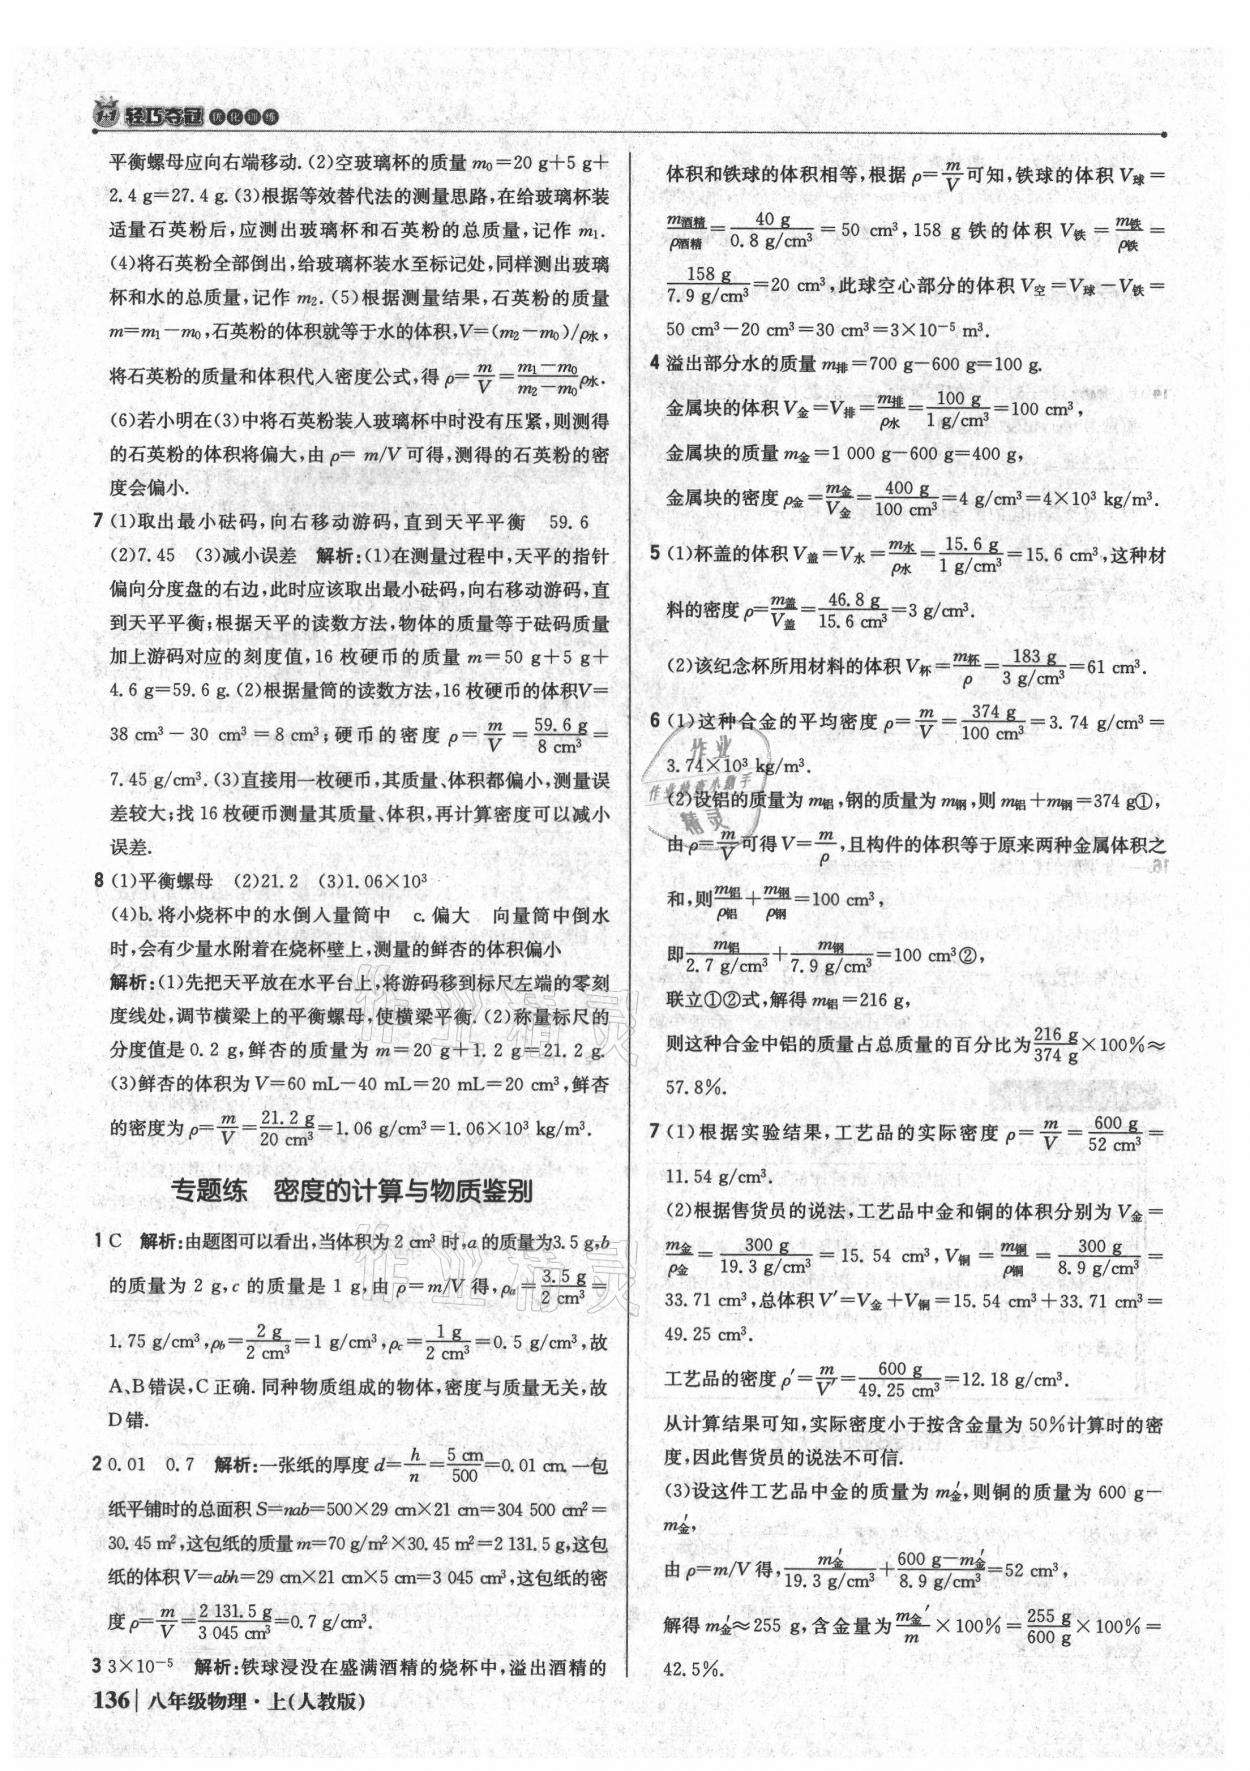 1+1 轻巧夺冠 优化训练
平衡螺母应向右端移动.(2)空玻璃杯的质量 m₀=20 g+5 g+
2.4 g=27.4 g.(3)根据等效替代法的测量思路,在给玻璃杯装
适量石英粉后,应测出玻璃杯和石英粉的总质量,记作 m₁.
(4)将石英粉全部倒出,给玻璃杯装水至标记处,同样测出玻璃
杯和水的总质量,记作 m₂.(5)根据测量结果,石英粉的质量
m=m₁-m₀,石英粉的体积就等于水的体积,V=(m₂-m₀)/ρ水,
将石英粉的质量和体积代入密度公式,得 ρ=m/V=(m₁-m₀)/(m₂-m₀)ρ水.
(6)若小明在(3)中将石英粉装入玻璃杯中时没有压紧,则测得
的石英粉的体积将偏大,由 ρ= m/V 可得,测得的石英粉的密
度会偏小.
7 (1)取出最小砝码,向右移动游码,直到天平平衡 59.6
(2)7.45 (3)减小误差 解析:(1)在测量过程中,天平的指针
偏向分度盘的右边,此时应该取出最小砝码,向右移动游码,直
到天平平衡;根据天平的读数方法,物体的质量等于砝码质量
加上游码对应的刻度值,16 枚硬币的质量 m=50 g+5 g+
4.6 g=59.6 g.(2)根据量筒的读数方法,16 枚硬币的体积V=
38 cm³-30 cm³=8 cm³;硬币的密度 ρ=m/V=59.6 g/8 cm³=
7.45 g/cm³.(3)直接用一枚硬币,其质量、体积都偏小,测量误
差较大;找 16 枚硬币测量其质量、体积,再计算密度可以减小
误差.
8 (1)平衡螺母 (2)21.2 (3)1.06×10³
(4)b.将小烧杯中的水倒入量筒中 c.偏大 向量筒中倒水
时,会有少量水附着在烧杯壁上,测量的鲜杏的体积偏小
解析:(1)先把天平放在水平台上,将游码移到标尺左端的零刻
度线处,调节横梁上的平衡螺母,使横梁平衡.(2)称量标尺的
分度值是 0.2 g,鲜杏的质量为 m=20 g+1.2 g=21.2 g.
(3)鲜杏的体积为 V=60 mL-40 mL=20 mL=20 cm³,鲜杏
的密度为 ρ=m/V=21.2 g/20 cm³=1.06 g/cm³=1.06×10³ kg/m³.
专题练 密度的计算与物质鉴别
1 C 解析:由题图可以看出,当体积为 2 cm³ 时,a 的质量为3.5 g,b
的质量为 2 g,c 的质量是 1 g,由 ρ=m/V 得,ρa=3.5 g/2 cm³=
1.75 g/cm³,ρb=2 g/2 cm³=1 g/cm³,ρc=1 g/2 cm³=0.5 g/cm³,故
A、B错误,C正确.同种物质组成的物体,密度与质量无关,故
D错.
2 0.01 0.7 解析:一张纸的厚度 d=h/n=5 cm/500=0.01 cm.一包
纸平铺时的总面积 S=nab=500×29 cm×21 cm=304 500 cm²=
30.45 m²,这包纸的质量m=70 g/m²×30.45 m²=2 131.5 g,这包
纸的体积V=abh=29 cm×21 cm×5 cm=3 045 cm³,这包纸的密
度 ρ=m/V=2 131.5 g/3 045 cm³=0.7 g/cm³.
3 3×10⁻⁵ 解析:铁球浸没在盛满酒精的烧杯中,溢出酒精的
136 八年级物理·上(人教版)
体积和铁球的体积相等,根据 ρ=m/V可知,铁球的体积 V球=
m酒精/ρ酒精=40 g/0.8 g/cm³=50 cm³,158 g 铁的体积 V铁=m铁/ρ铁=
158 g/7.9 g/cm³=20 cm³,此球空心部分的体积 V空=V球-V铁=
50 cm³-20 cm³=30 cm³=3×10⁻⁵ m³.
4 溢出部分水的质量 m排=700 g-600 g=100 g.
金属块的体积 V金=V排=m排/ρ水=100 g/1 g/cm³=100 cm³,
金属块的质量 m金=1 000 g-600 g=400 g,
金属块的密度 ρ金=m金/V金=400 g/100 cm³=4 g/cm³=4×10³ kg/m³.
5 (1)杯盖的体积 V盖=V水=m水/ρ水=15.6 g/1 g/cm³=15.6 cm³,这种材
料的密度 ρ=m盖/V盖=46.8 g/15.6 cm³=3 g/cm³.
(2)该纪念杯所用材料的体积 V杯=m杯/ρ=183 g/3 g/cm³=61 cm³.
6 (1)这种合金的平均密度 ρ=m/V=374 g/100 cm³=3.74 g/cm³=
3.74×10³ kg/m³.
(2)设铝的质量为 m铝,钢的质量为 m钢,则 m铝+m钢=374 g①,
由 ρ=m/V可得 V=m/ρ,且构件的体积等于原来两种金属体积之
和,则m铝/ρ铝+m钢/ρ钢=100 cm³,
即m铝/2.7 g/cm³+m钢/7.9 g/cm³=100 cm³②,
联立①②式,解得 m铝=216 g,
则这种合金中铝的质量占总质量的百分比为216 g/374 g×100%≈
57.8%.
7 (1)根据实验结果,工艺品的实际密度 ρ=m/V=600 g/52 cm³=
11.54 g/cm³.
(2)根据售货员的说法,工艺品中金和铜的体积分别为 V金=
m金/ρ金=300 g/19.3 g/cm³=15.54 cm³,V铜=m铜/ρ铜=300 g/8.9 g/cm³=
33.71 cm³,总体积 V′=V金+V铜=15.54 cm³+33.71 cm³=
49.25 cm³.
工艺品的密度 ρ′=m/V′=600 g/49.25 cm³=12.18 g/cm³.
从计算结果可知,实际密度小于按含金量为 50%计算时的密
度,因此售货员的说法不可信.
(3)设这件工艺品中金的质量为 m金′,则铜的质量为 600 g-
m金′,
由 ρ=m/V 得,m金′/19.3 g/cm³+(600 g-m金′)/8.9 g/cm³=52 cm³,
解得 m金′≈255 g,含金量为m金′/m×100%=255 g/600 g×100%=
42.5%.
作业
作业检查小助手
精灵
作业精灵
作业精灵